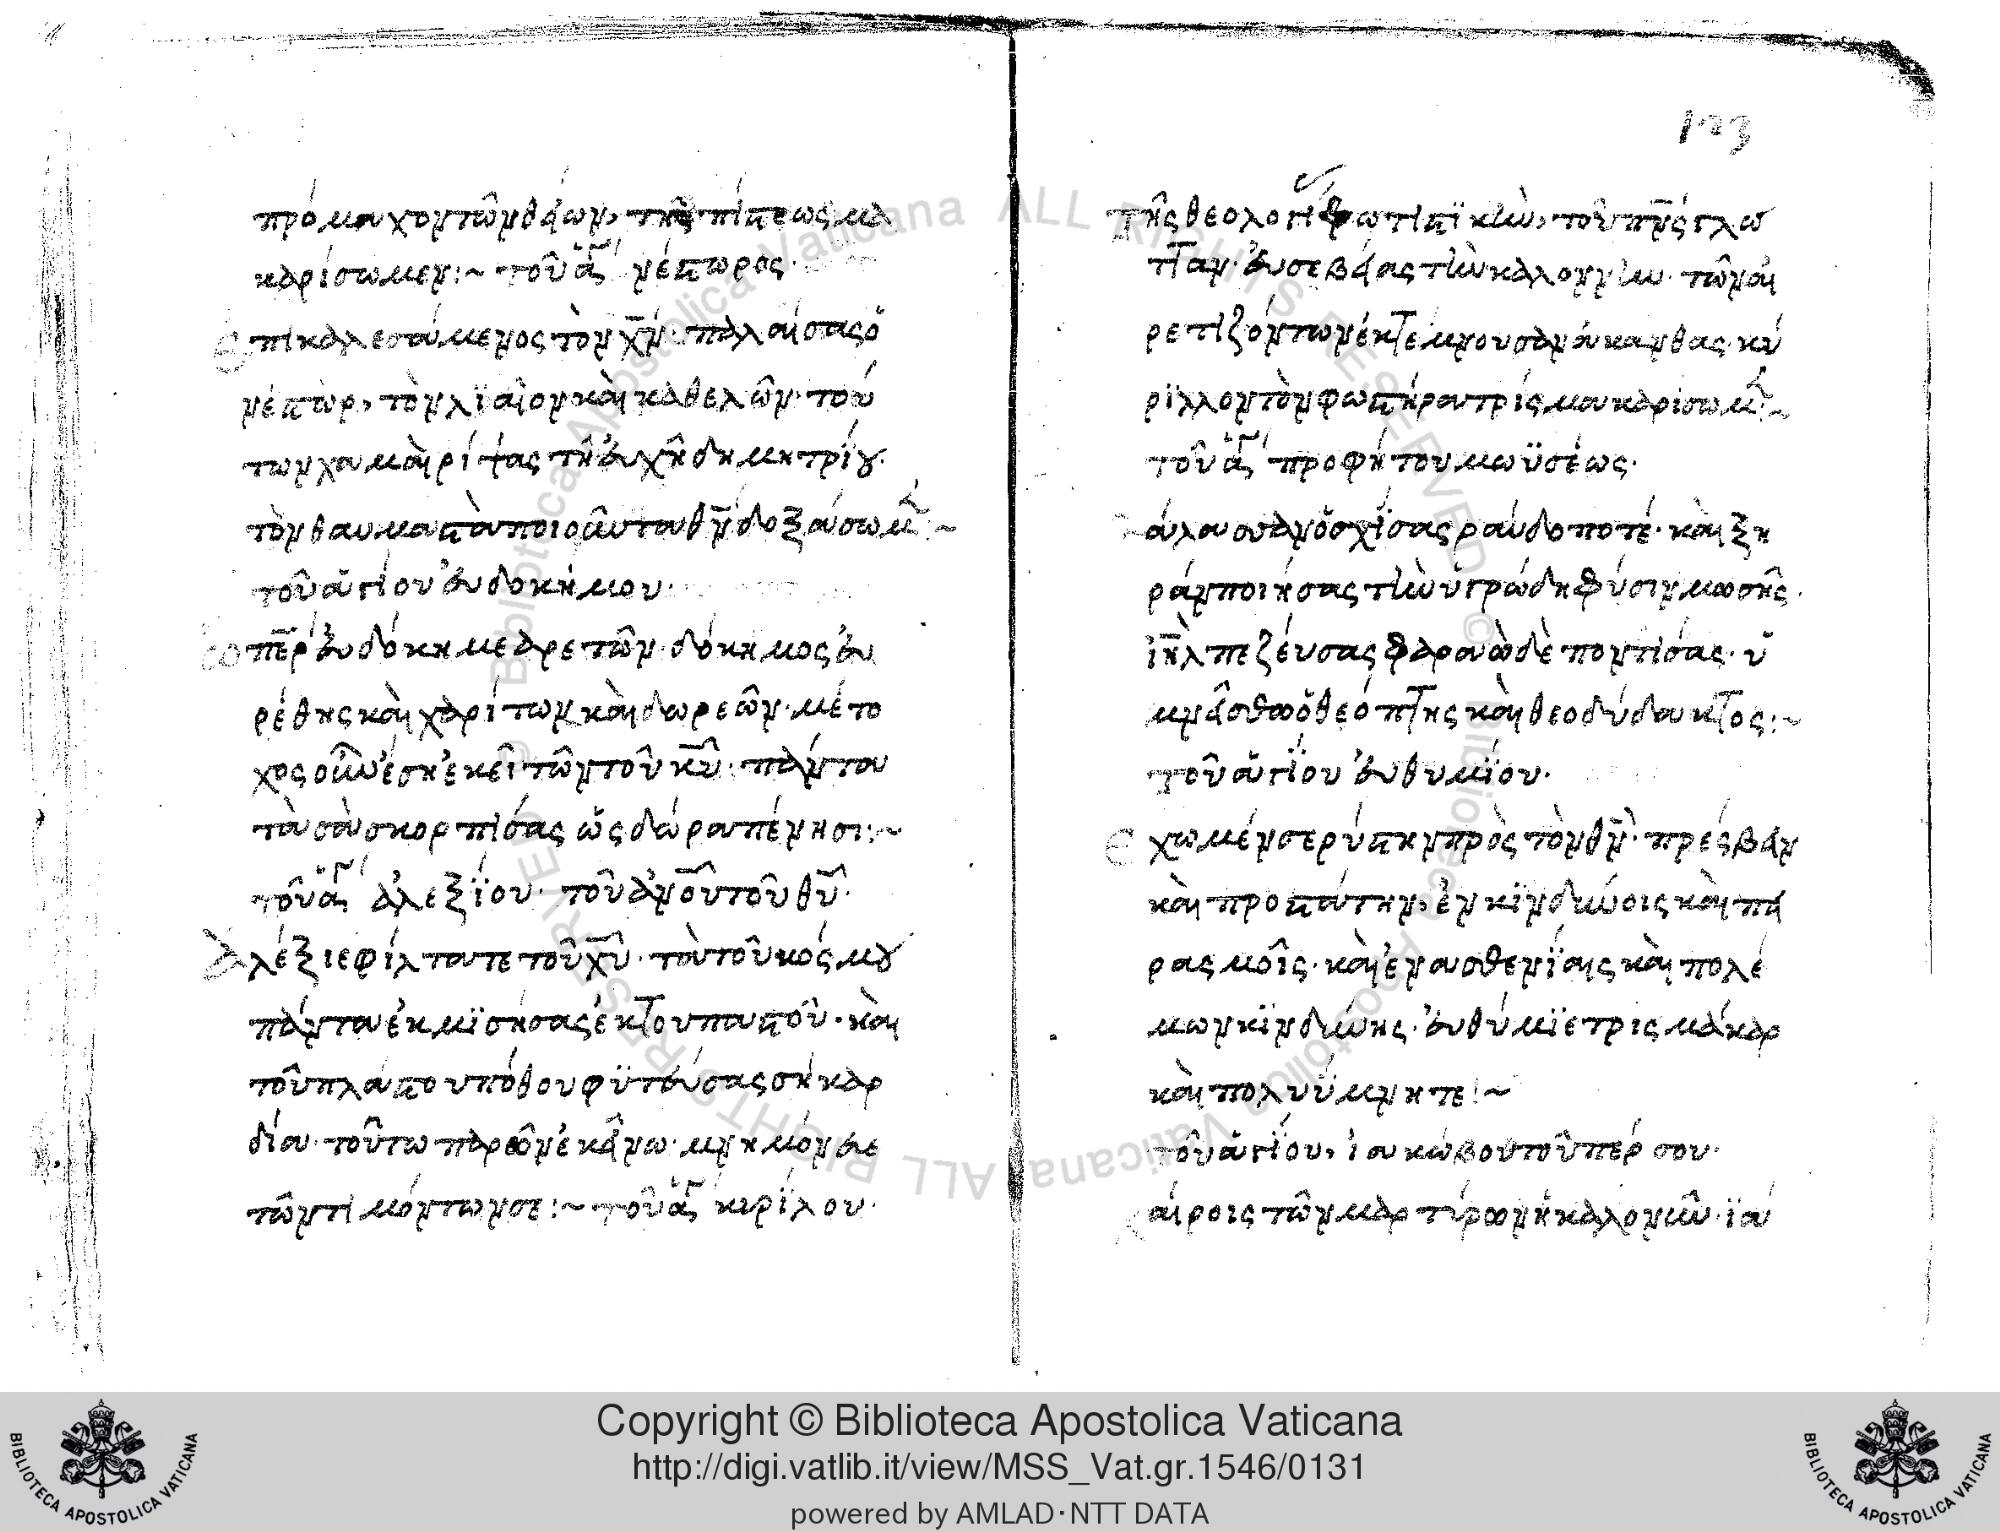 πρόμαχον τῶν θείων, τῆς πίστεως μα
καρίσωμεν :~ τοῦ ἁγ νέστωρος ·
Επικαλεσάμενος τὸν χ̅ν̅ · παλαίσας ὁ
νέστωρ, τὸν λϊαῖον καὶ καθελῶν · τού
τον χαμαὶ ρίψας τῆ εὐχῆ δημητρίου ·
τὸν θαυμαστὰ ποιοῦντα θ̅ν̅ δοξάσωμεν :~
τοῦ ἁγίου εὐδοκήμου ·
Ω πε̅ρ εὐδόκημε ἀρετῶν · δόκημος εὑ
ρέθης καὶ χαρίτων καὶ δωρεῶν · μέτο
χος οὖν ἔση ἐκεῖ τῶν τοῦ κ̅υ̅ · πάντα
τὰ σὰ σκορπίσας ὡς δῶρα πένησι :~
τοῦ ἁγ ἀλεξΐου · τοῦ ἀν̅ο̅υ̅ τοῦ θ̅υ̅ ·
Αλέξιε φίλτατε τοῦ χ̅υ̅ · τὰ τοῦ κόσμου
πάντα ἐκμϊσήσας ἐκ τοῦ παστοῦ · καὶ
τοῦ πλάστου πόθου φϋτεύσας σῆ καρ
δία · τούτω παρεῶν ἐκεῖνω · μνημόνευε
τῶν τιμόντων σε :~ τοῦ ἁγ κυρίλου ·
123
Τῆς θεολογίας φωτιστϊκὴν, τοῦ π̅ν̅ς γλω
τταν · εὐσεβείας τὴν καλονὴν · τῶν αἱ
ρετιζόντων ἐκτέμνουσαν ἀκάνθας · κύ
ριλλον τὸν φωστήρα τρίς μακαρίσωμεν :~
τοῦ ἁγ προφήτου μωϋσέως ·
άλασσαν ὁ σχίσας ράβδο ποτέ · καὶ ξη
ράν ποιήσας τὴν ὑγρώδη φύσιν μωσῆς ·
ἰη̅λ πεζέυσας φαραὼ δὲ ποντίσας · ὑ
μνείσθω ὁ θεόπτης καὶ θεοδύδακτος :~
τοῦ ἁγΐου εὐθυμΐου ·
Εχωμέν σε ρύστην πρὸς τὸν θ̅ν̅ · πρέσβειν
καὶ προστάτην, ἐν κϊνδύνοις καὶ πει
ρασμοῖς · καὶ ἐν ασθενΐαις καὶ πολέ
μων κϊνδύνης · εὐθύμϊε τρισμάκαρ
καὶ πολυΰμνητε :~
τοῦ ἁγΐου, ἰακώβου τοῦ πέρσου ·
αίροις τῶν μαρτίρων ἡ καλονὴ · ϊά
Copyright © Biblioteca Apostolica Vaticana
http://digi.vatlib.it/view/MSS_Vat.gr.1546/0131
powered by AMLAD·NTT DATA
BIBLIOTECA APOSTOLICA VATICANA
BIBLIOTECA APOSTOLICA VATICANA